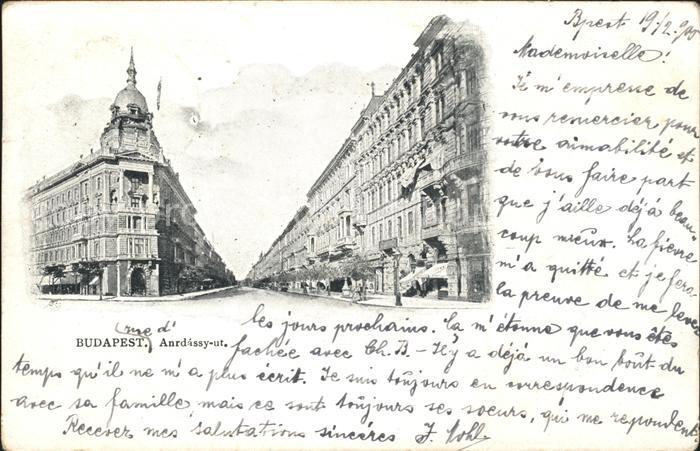 Bpest 19/2.900
Mademoiselle!
Je m'empresse de
vous remercier pour
votre aimabilité et
de vous faire part
que j'aille déjà beau-
coup mieux. La fièvre
m'a quitté et je fera
la preuve de me lever
les jours prochains. Ça m'étonne que vous êtes
(rue d'
BUDAPEST.) Anrdássy-ut.
fachée avec Ch. B- Il y a déjà un bon bout du
temps qu'il ne m'a plus écrit. Je suis toûjours en correspondence
avec sa famille, mais ce sont toûjours ses soeurs, qui me repondent.
Recever mes salutations sincéres J. Kohl